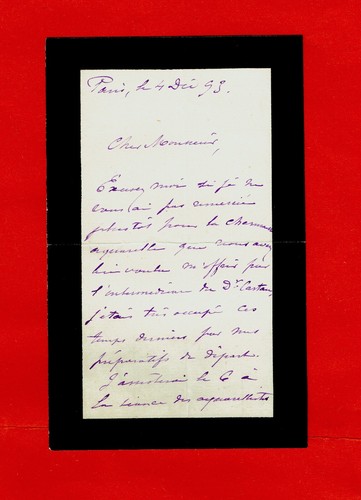 Paris, le 4 Déc 93.
Cher Monsieur,
Excusez moi si je ne
vous ai pas remercié
plus tôt pour la charmante
aquarelle que vous avez
bien voulu m'offrir par
l'intermédiaire du Dr Castan,
j'étais très occupé ces
temps derniers par mes
préparatifs de départ.
J'assisterai le 6 à
la séance des aquarellistes